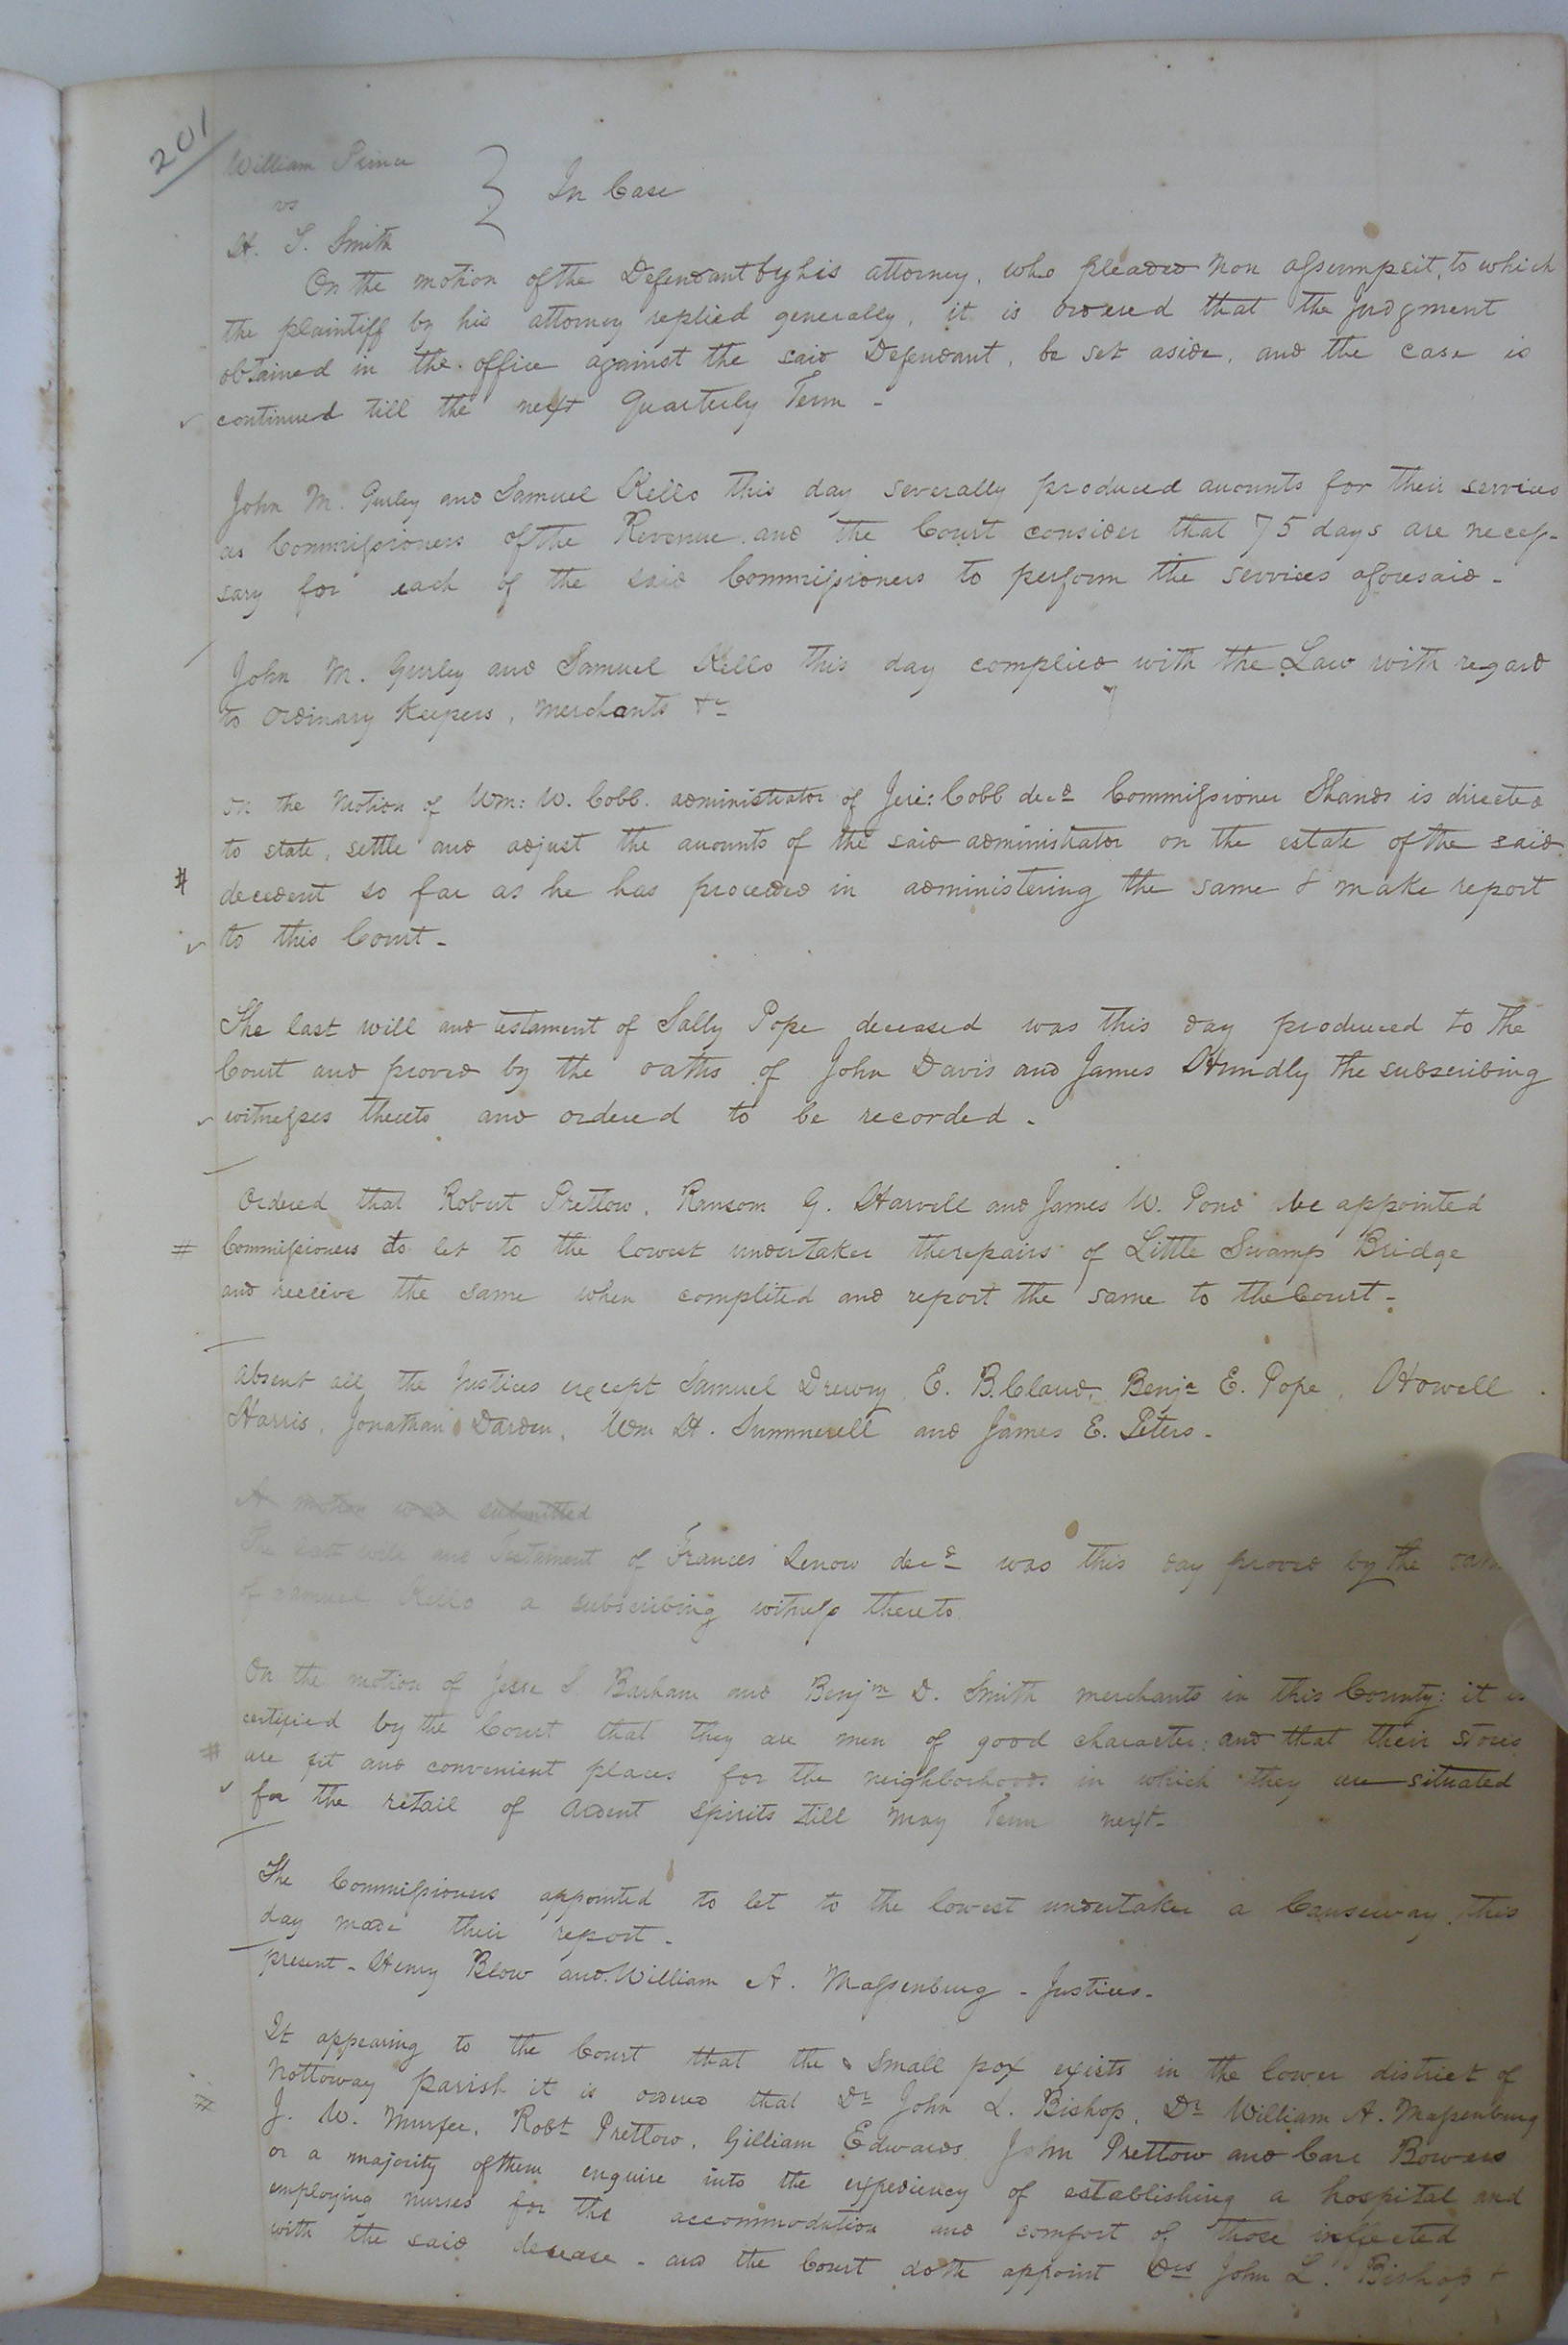 201
William Prince
vs
H. S. Smith
} In Case
On the motion of the Defendant by his attorney, who pleaded non assumpsit, to which
the plaintiff by his attorney replied generally, it is ordered that the Judgment
obtained in the office against the said Defendant, be set aside, and the case is
continued till the next Quarterly Term -
John M. Gurley and Samuel Kello this day severally produced accounts for their services
as Commissioners of the Revenue and the Court consider that 75 days are neces-
sary for each of the said Commissioners to perform the services aforesaid -
John M. Gurley and Samuel Kello this day complied with the Law with regard
to Ordinary Keepers, Merchants &c
On the Motion of Wm: W. Cobb. administrator of Jere: Cobb decd Commissioner Shands is directed
to state, settle and adjust the accounts of the said administrator on the estate of the said
# decedent so far as he has proceeded in administering the same & make report
to this Court -
The last will and testament of Sally Pope deceased was this day produced to the
Court and proved by the oaths of John Davis and James Hundly the subscribing
witnesses thereto and ordered to be recorded -
Ordered that Robert Pretlow, Ransom G. Harvell and James W. Pond be appointed
# Commissioners to let to the lowest undertaker the repairs of Little Swamp Bridge
and receive the same when complited and report the same to the Court -
Absent all the Justices except Samuel Drewry E. B. Claud, Benja E. Pope, Howell
Harris, Jonathan Darden, Wm H. Summerell and James E. Peters -
A motion was submitted
The last will and Testament of Frances Lenow decd was this day proved by the
of Samuel Kello a subscribing witness thereto
On the motion of Jesse S. Barham and Benjm D. Smith merchants in this County: it is
certified by the Court that they are men of good character: and that their stores
# are fit and convenient places for the neighborhoods in which they are situated
for the retail of Ardent Spirits till May Term next -
The Commissioners appointed to let to the lowest undertaker a Causeway this
day made their report -
present - Henry Blow and William A. Massenburg - Justices -
It appearing to the Court that the small pox exists in the lower district of
# Nottoway parish it is ordered that Dr John L. Bishop, Dr William A. Massenburg
J. W. Murfee, Robt Pretlow, Gilliam Edwards John Pretlow and Carr Bowers
or a majority of them enquire into the expediency of establishing a hospital and
employing nurses for the accommodation and comfort of those inffected
with the said desease - and the Court doth appoint Drs John L. Bishop &